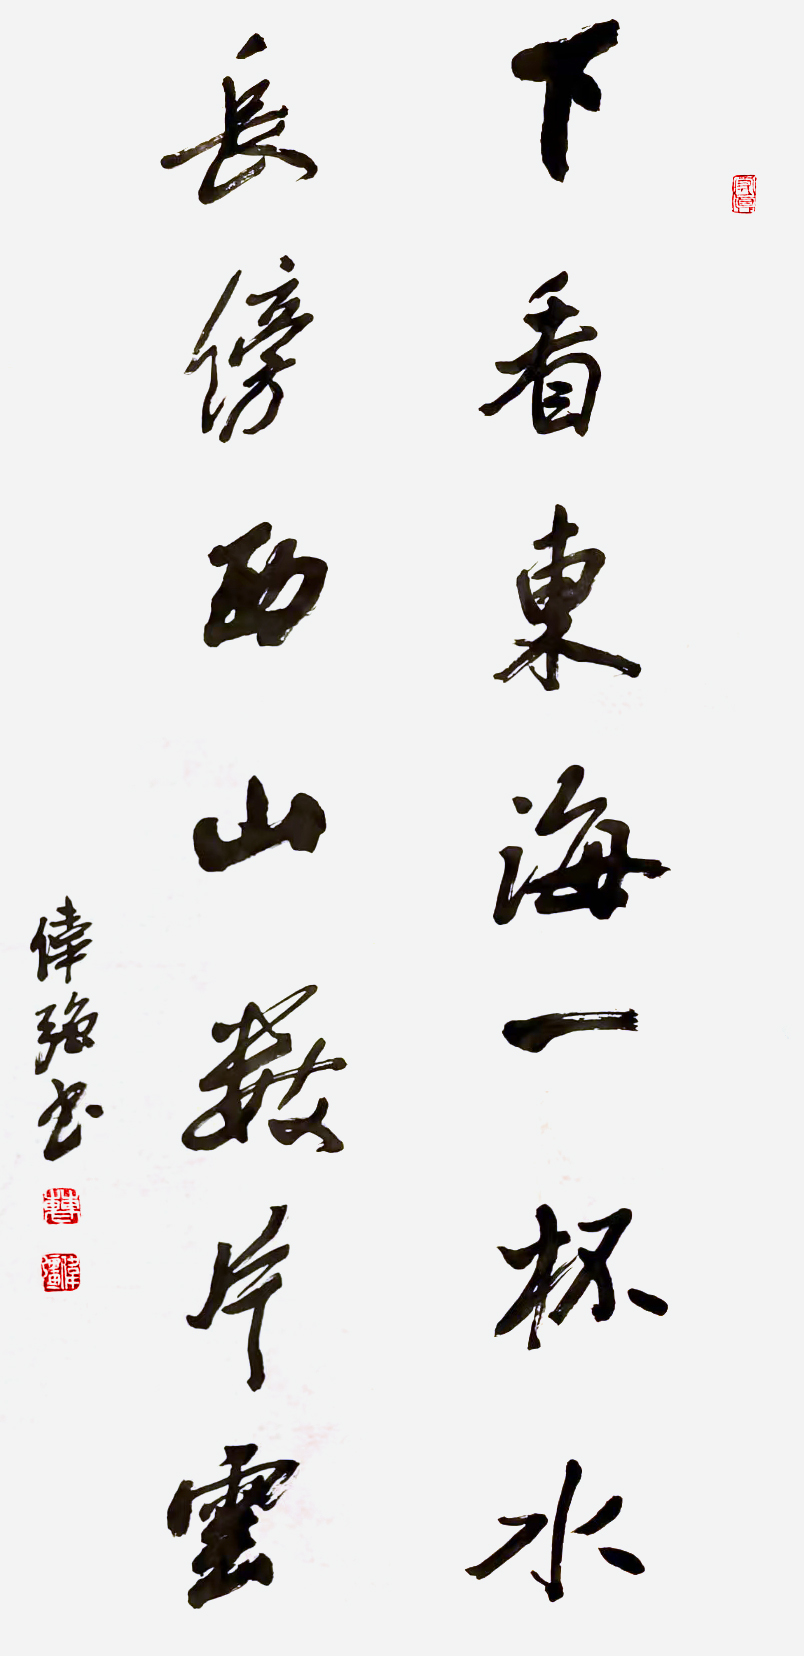 下看東海一杯水
長傍西山數片雲
偉強书